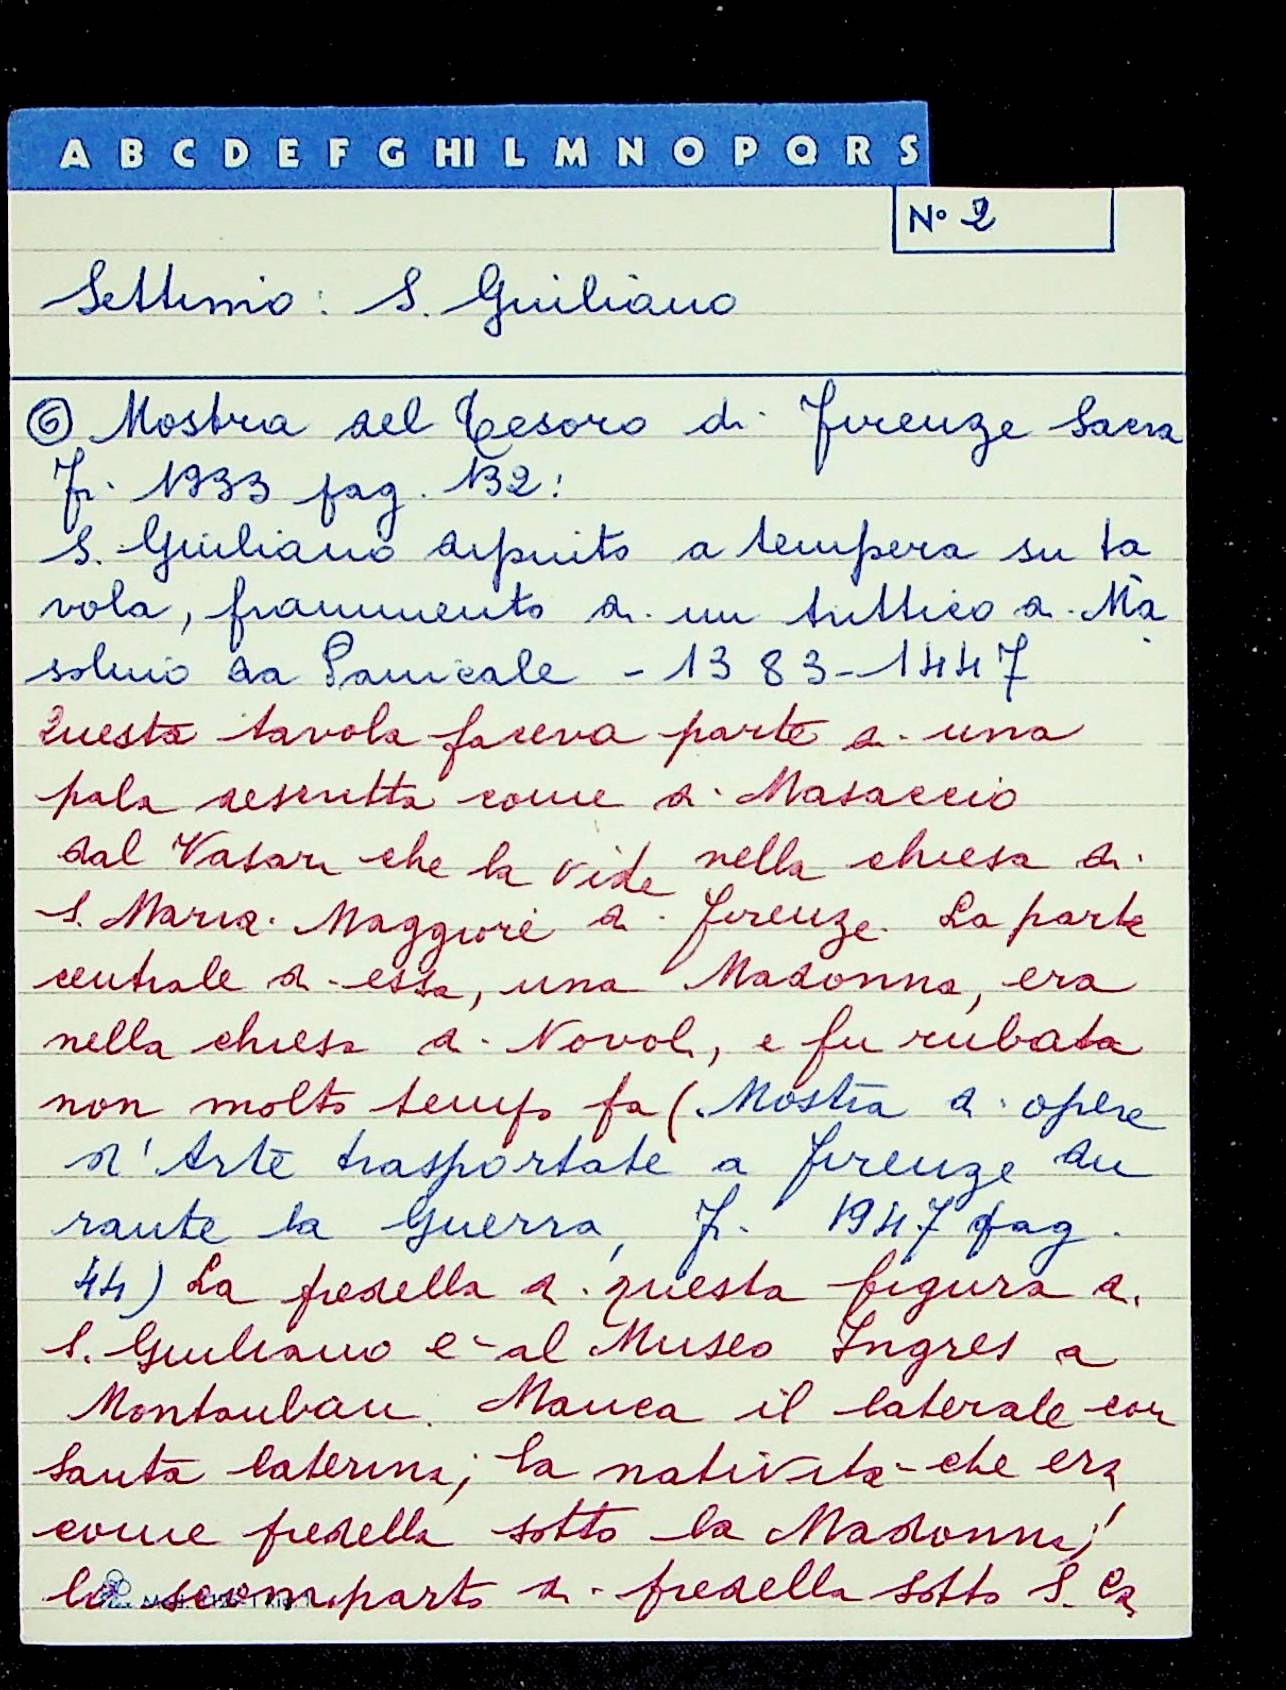 A B C D E F G HI L M N O P Q R S
N° 2
Settimio: S. Giuliano
⑥ Mostra del Tesoro di Firenze Sacra
Fi. 1933 pag. 132:
S. Giuliano dipinto a tempera su ta
vola, frammento di un trittico di Ma
solino da Panicale - 1383-1447
Questa tavola faceva parte di una
pala descritta come di Masaccio
dal Vasari che la vide nella chiesa di
S. Maria Maggiore di Firenze. La parte
centrale di essa, una Madonna, era
nella chiesa di Novoli, e fu rubata
non molto tempo fa (Mostra di opere
d'Arte trasportate a Firenze du
rante la Guerra, Fi. 1947 pag.
44) La predella di questa figura di
S. Giuliano e' al Museo Ingres a
Montauban. Manca il laterale con
Santa Caterina; la natività che era
come predella sotto la Madonna;
lo scomparto di predella sotto S. Ca